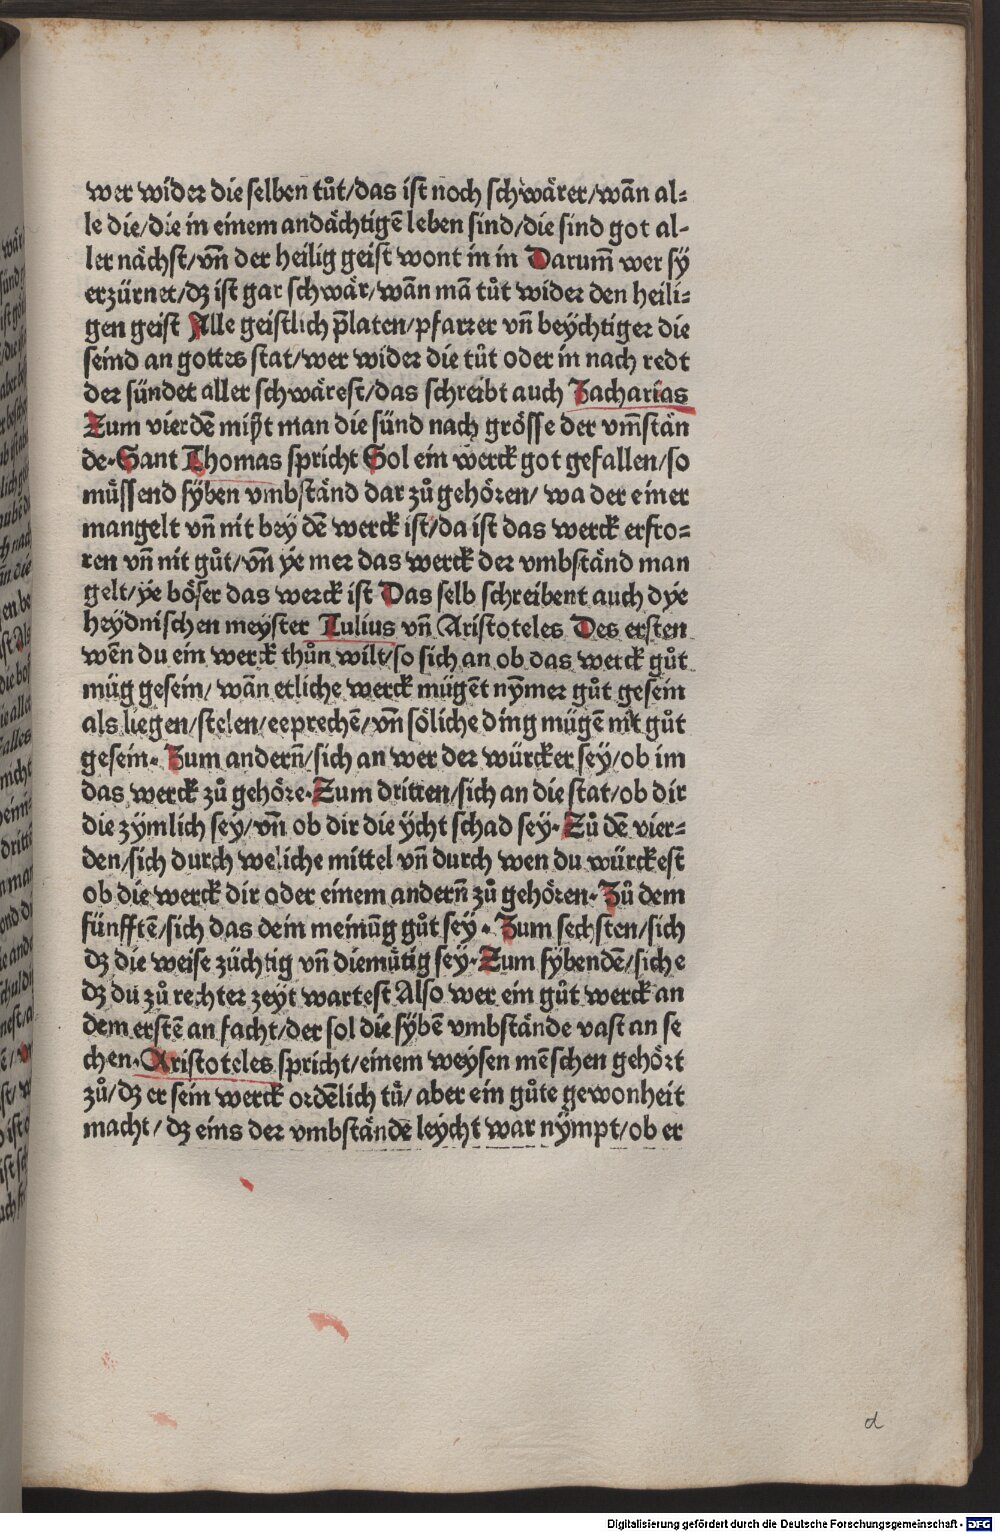 wer wider die selben tůt/das ist noch schwärer/wañ al⸗
le die/die in einem andächtigē leben sind/die sind got al⸗
ler nächst/vñ der heilig geist wont in in Darum̄ wer sy
erzürnet/dz ist gar schwär/wañ mā tůt wider den heili⸗
gen geist Alle geistlich p̄laten/pfarrer vñ beÿchtiger die
seind an gottes stat/wer wider die tůt oder in nach redt
der sündet aller schwärest/das schreibt auch Zacharias
Zum vierdē mißt man die sünd nach grösse der vm̄stän
de. Sant Thomas spricht Sol ein werck got gefallen/so
müssend sÿben vmbständ dar zů gehören/ wa der einer
mangelt vñ nit bey dē werck ist/da ist das werck erfro⸗
ren vñ nit gůt/vñ ye mer das werck der vmbständ man
gelt/ye böser das werck ist Das selb schreibent auch dye
heÿdnischen meyster Tulius vñ Aristoteles Des ersten
wēn du ein werck thůn wilt/so sich an ob das werck gůt
müg gesein/ wañ etliche werck mügēt nȳmer gůt gesein
als liegen/stelen/eeprechē/vñ söliche ding mügē nit gůt
gesein. Zum andern̄/sich an wer der würcker sey/ob im
das werck zů gehöre. Zum dritten/sich an die stat/ob dir
die zymlich sey/vñ ob dir die ÿcht schad sey. Zů dē vier⸗
den/sich durch weliche mittel vñ durch wen du würckest
ob die werck dir oder einem andern̄ zů gehören. Zů dem
fünfftē/sich das dein meinūg gůt sey. Zum sechsten/sich
dz die weise züchtig vñ diemütig sey. Zum sybendē/siche
dz du zů rechter zeyt wartest Also wer ein gůt werck an
dem erstē an facht/der sol die sÿbē vmbstände vast an se
chen. Aristoteles spricht/einem weysen mēschen gehört
zů/dz er sein werck ordēlich tů/ aber ein gůte gewonheit
macht/ dz eins der vmbstände leycht war nÿmpt/ob er
d
Digitalisierung gefördert durch die Deutsche Forschungsgemeinschaft - DFG